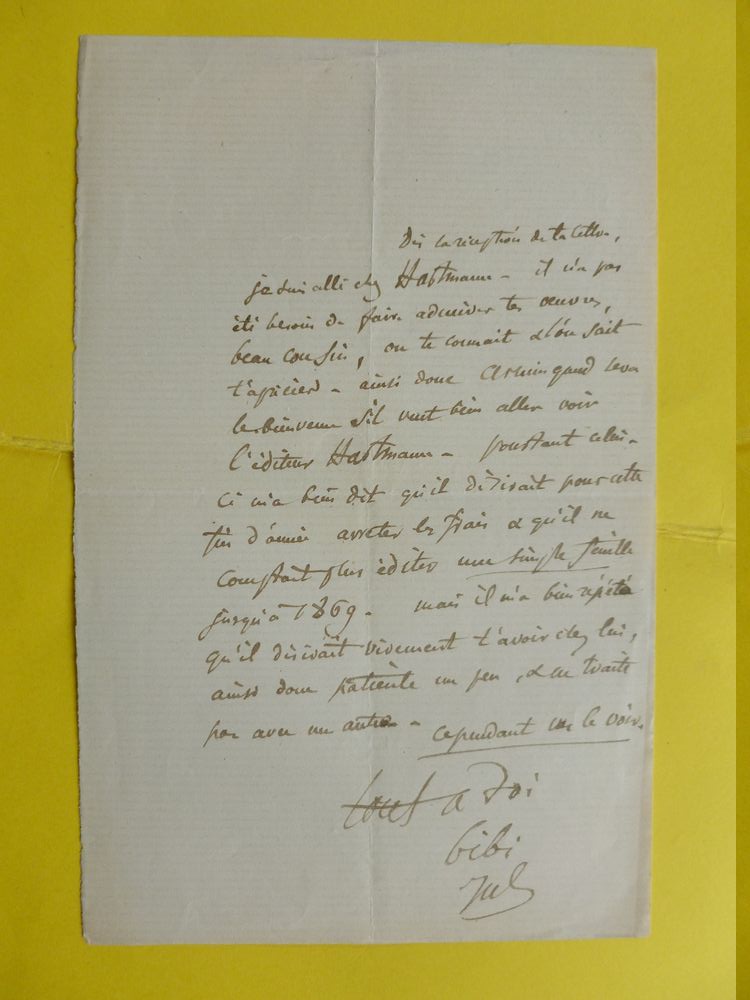 Dès la réception de ta lettre,
je suis allé chez Hartmann - il n'a pas
été besoin de faire admirer tes œuvres,
beau cousin, on te connait & l'on sait
t'apprécier - ainsi donc Armingaud sera
le bienvenu s'il veut bien aller voir
l'éditeur Hartmann - pourtant celui-
ci m'a bien dit qu'il désirait pour cette
fin d'année arrêter les frais & qu'il ne
comptait plus éditer une simple feuille
jusqu'à 1869 - mais il m'a bien répété
qu'il désirait vivement t'avoir chez lui,
ainsi donc patiente un peu, & ne traite
pas avec un autre - cependant va le voir.
tout à toi
bibi